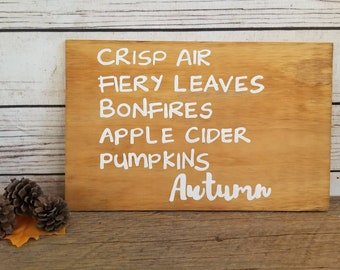 CRISP AIR
FIERY LEAVES
BONFIRES
APPLE CIDER
PUMPKINS
Autumn